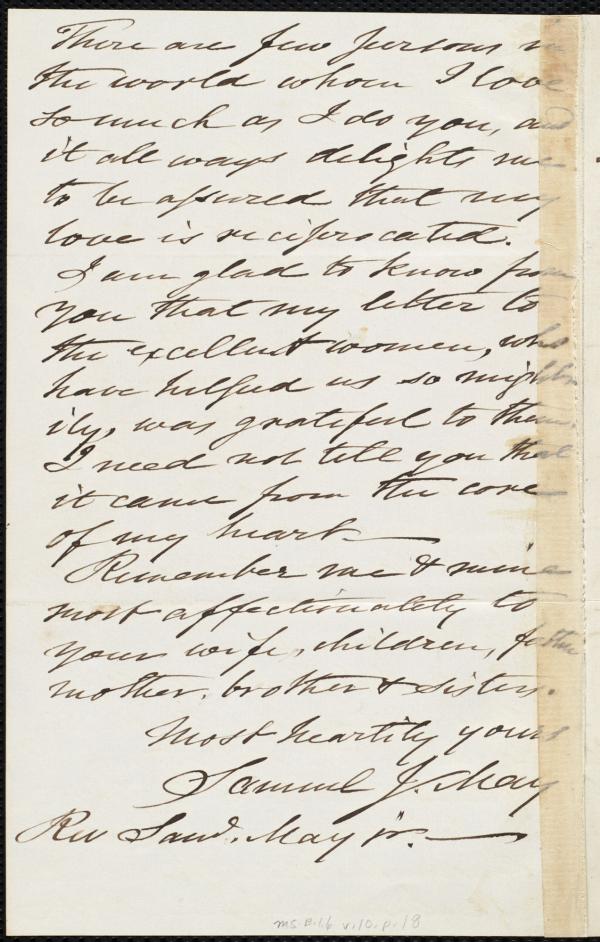 There are few persons in
the world whom I love
so much as I do you, and
it all ways delights me
to be assured that my
love is reciprocated.
I am glad to know from
you that my letter to
the excellent women, who
have helped us so might-
ily, was grateful to them.
I need not tell you that
it came from the core
of my heart —
Remember me & mine
most affectionately to
your wife, children, father
mother, brother & sister.
Most heartily yours
Samuel J. May
Rev Saml. May Jr. —
Ms. B.1.6 v.10, p.18